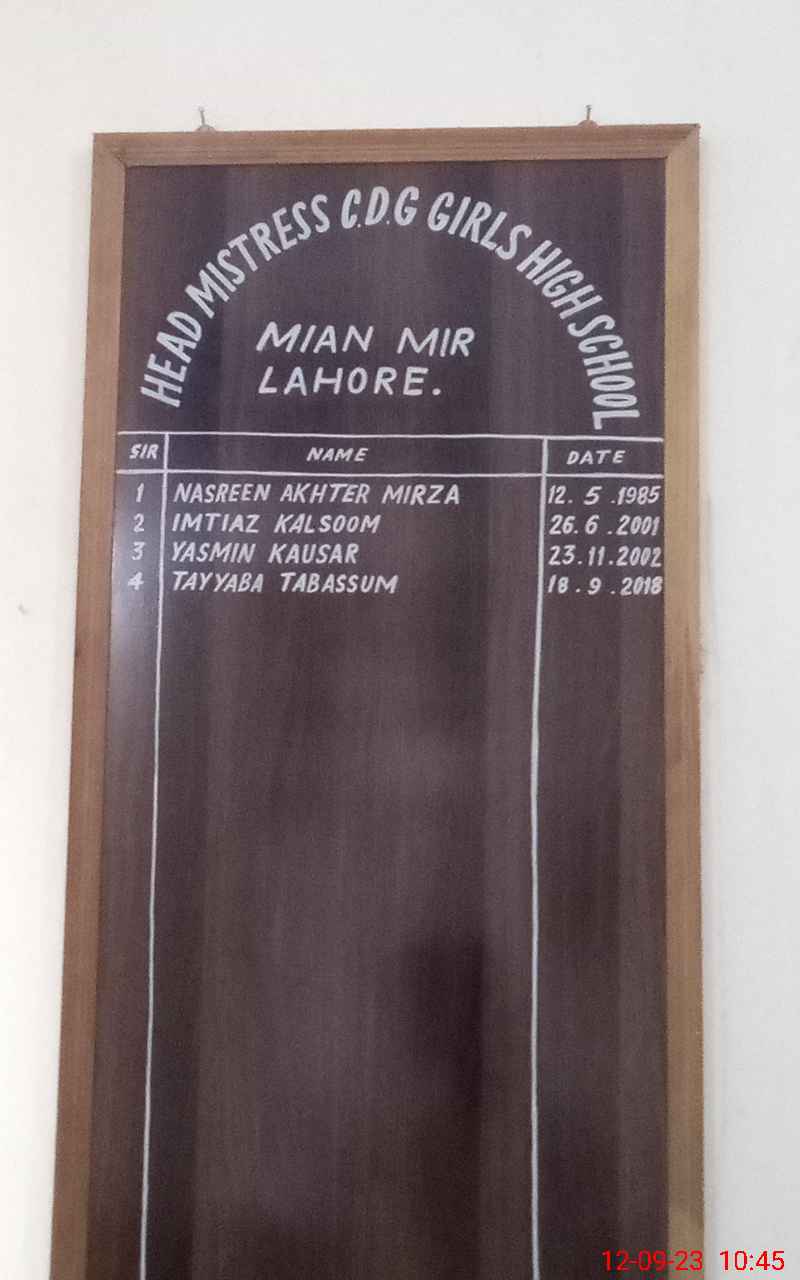 HEAD MISTRESS C.D.G GIRLS HIGH SCHOOL
MIAN MIR
LAHORE.
SIR NAME DATE
1 NASREEN AKHTER MIRZA 12. 5 .1985
2 IMTIAZ KALSOOM 26. 6 .2001
3 YASMIN KAUSAR 23.11.2002
4 TAYYABA TABASSUM 18. 9 .2018
12-09-23 10:45